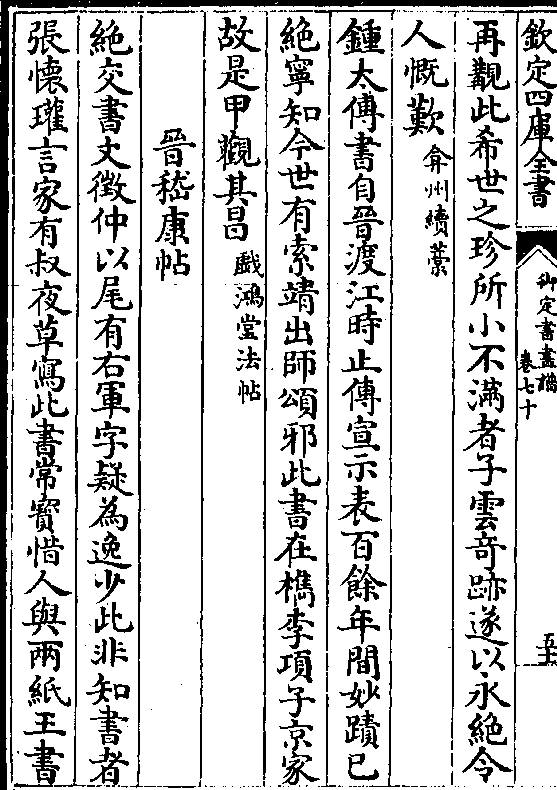 欽定四庫全書
御定書畫譜
卷七十
五十
再觀此希世之珍所小不滿者子雲竒跡遂以永絕令
人慨歎
弇州續藁
鍾太傅書自晉渡江時止傳宣示表百餘年間妙蹟已
絕寧知今世有索靖出師頌邪此書在檇李項子京家
故是甲觀其昌
戲鴻堂法帖
晉嵇康帖
絶交書文徵仲以尾有右軍字疑為逸少此非知書者
張懷瓘言家有叔夜草寫此書常寳惜人與兩紙王書